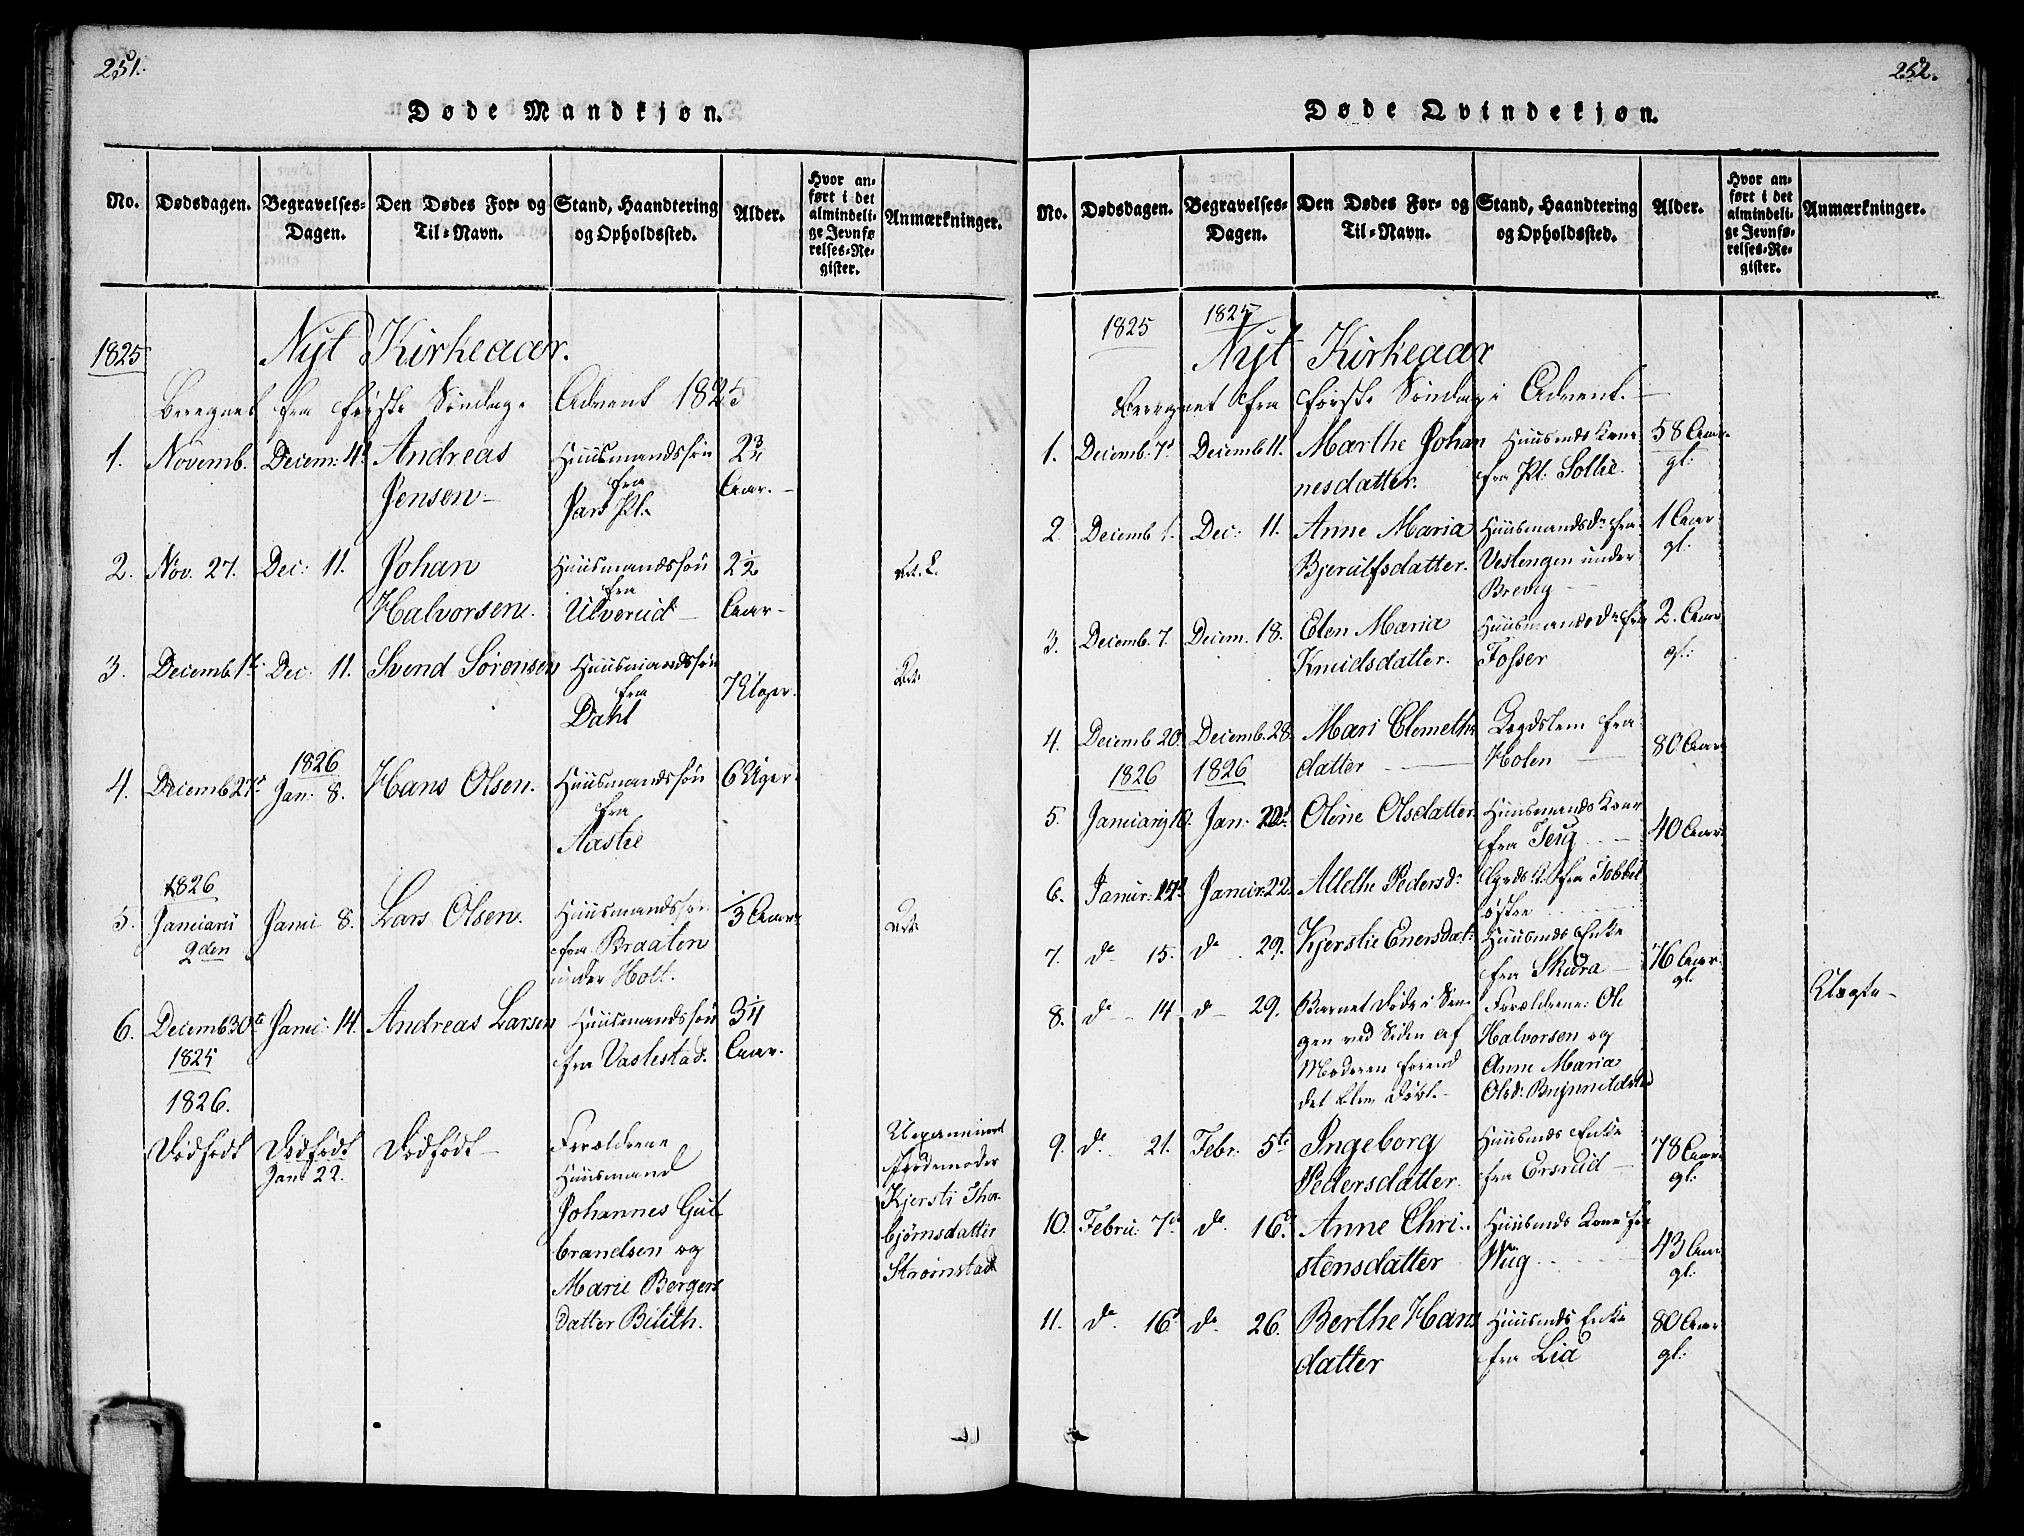 251.
Døde Mandkjøn.
No. Dødsdagen. Begravelses-Dagen. Den Dødes For- og Til-Navn. Stand, Haandtering og Opholdssted. Alder. Hvor anført i det almindelige Jevnførelses-Register. Anmærkninger.
1825 Nyt Kirkeaar.
Beregnet fra første Søndag i Advent 1825
1. Novemb. Decem: 4d Andreas Huusmandssøn 2¾
Jensen fra Aar.
Pl.
2. Nov. 27. Dec: 11. Johan Huusmandssøn 2½
Halvorsen. fra Aar
Ulverud
3. Decemb. 1te Dec. 11. Svend Sørensen Huusmandssøn 7 Uger.
fra
Dahl
4. Decemb 27d 1826 Jan: 8. Hans Olsen. Huusmandssøn 6 Uger
fra
Aaslie
1826
5. Januarii Janu 8. Lars Olsen. Huusmandssøn ⅓ Aar
2den fra Braaten
under Holt.
6. Decemb 30te Janu: 14. Andreas Larsen Huusmandssøn
1825 fra Vastestad. Aar.
1826.
Dødfødt Dødfødt Dødfødt Forældrene Uexamineret
Jan 22. Huusmand Jordemoder
Johannes Gul Kjersti Thor
brandsen og bjørnsdatter
Marie Bergers Strømstad
datter Bilith.
252.
Døde Qvindekjøn.
No. Dødsdagen. Begravelses-Dagen. Den Dødes For- og Til-Navn. Stand, Haandtering og Opholdssted. Alder. Hvor anført i det almindelige Jevnførelses-Register. Anmærkninger.
1825 1825
Nyt Kirkeaar
Beregnet fra første Søndag i Advent.
1. Decemb. 7d Decemb 11. Marthe Johan Huusmds Kone 58 Aar
nesdatter. fra Pl: Sollie. gl:
2 Decemb 1. Dec: 11. Anne Maria Huusmandsdr fra 1 Aar
Bjerulfsdatter. Vestengen under gl:
3. Decemb. 7. Decem. 18. Elen Maria Huusmandsdr fra 2 Aar
Knudsdatter. Fosser gl:
4. Decemb 20. Decemb. 28. Mari Clemeths Lægdslem fra 80 Aar
datter Holen
1826 1826
5. Januarij 10. Jan: Oline Olsdatter Huusmands Kone 40 Aar
fra
6. Janur: Janur: 22. Allethe Pedersd:
østre
7. do 15. do 29. Kjerstie Enersdat: Huusmds Enke 76 Aar
fra Skara gl
8. do 14 do 29. Barnet døde i Sen Forældrene: Ole
gen ved Siden af Halvorsen og
Moderen forend Anne Maria
det blev døbt. Olsd:
9. do 21. Febr. 5te Ingeborg Huusmds Enke 78 Aar
Pedersdatter. fra Ersrud gl:
10. Febru: 7d do 16d Anne Chri Huusmds Kone fra 43 Aar
stensdatter Wiig gl:
11. do 16d do 26. Berthe Hans Huusmds Enke 80 Aar
datter fra Lia gl: